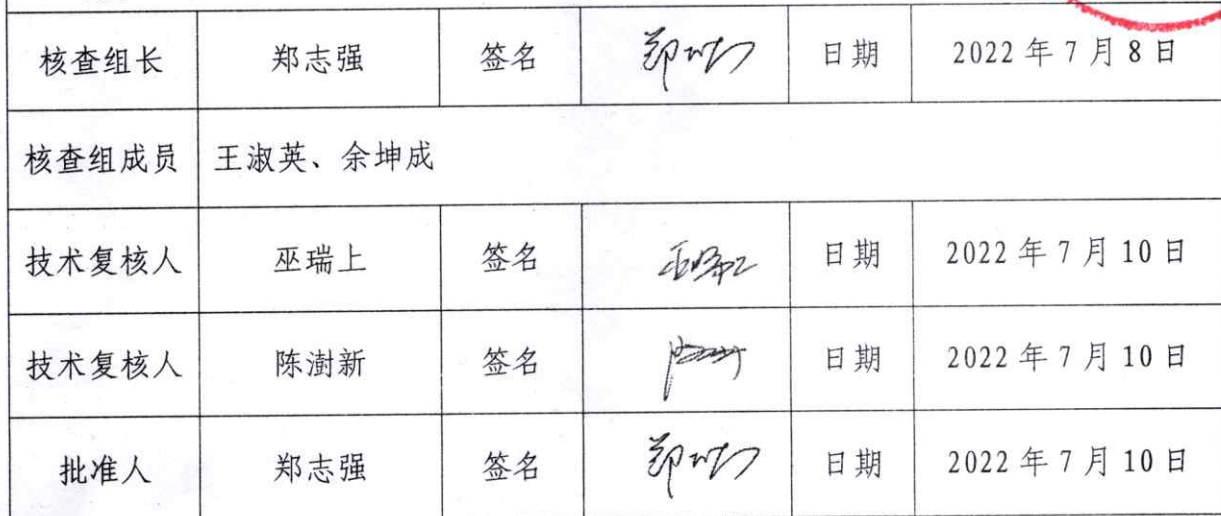 核查组长 郑志强 签名 日期 2022 年 7 月 8 日
核查组成员 王淑英、余坤成
技术复核人 巫瑞上 签名 日期 2022 年 7 月 10 日
技术复核人 陈澍新 签名 日期 2022 年 7 月 10 日
批准人 郑志强 签名 日期 2022 年 7 月 10 日